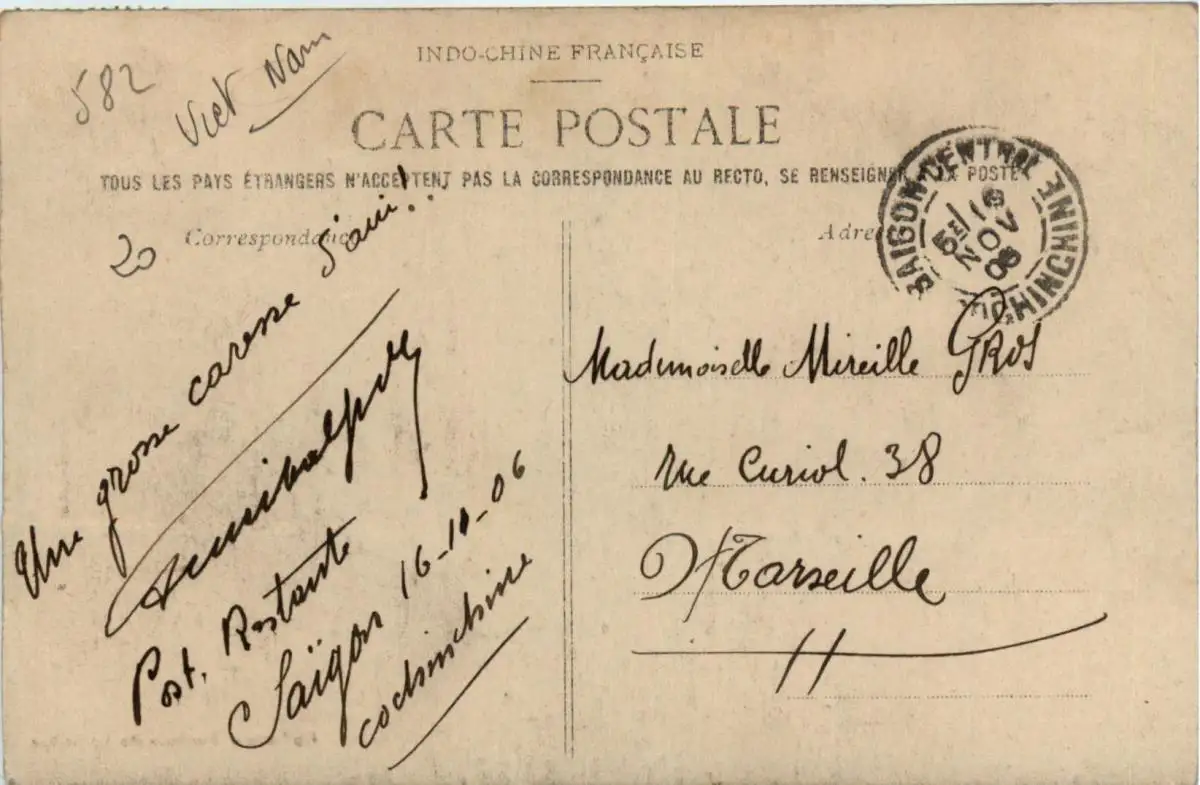 582
Viet Nam
INDO-CHINE FRANÇAISE
CARTE POSTALE
TOUS LES PAYS ÉTRANGERS N'ACCEPTENT PAS LA CORRESPONDANCE AU RECTO, SE RENSEIGNER A LA POSTE
20
Correspondance
Une grosse caresse d'ami!..
Post. Restante
Saïgon 16-11-06
cochinchine
Adresse
SAIGON-CENTRAL
COCHINCHINE
16
NOV
06
Mademoiselle Mireille GROS
rue Curiol. 38
Marseille